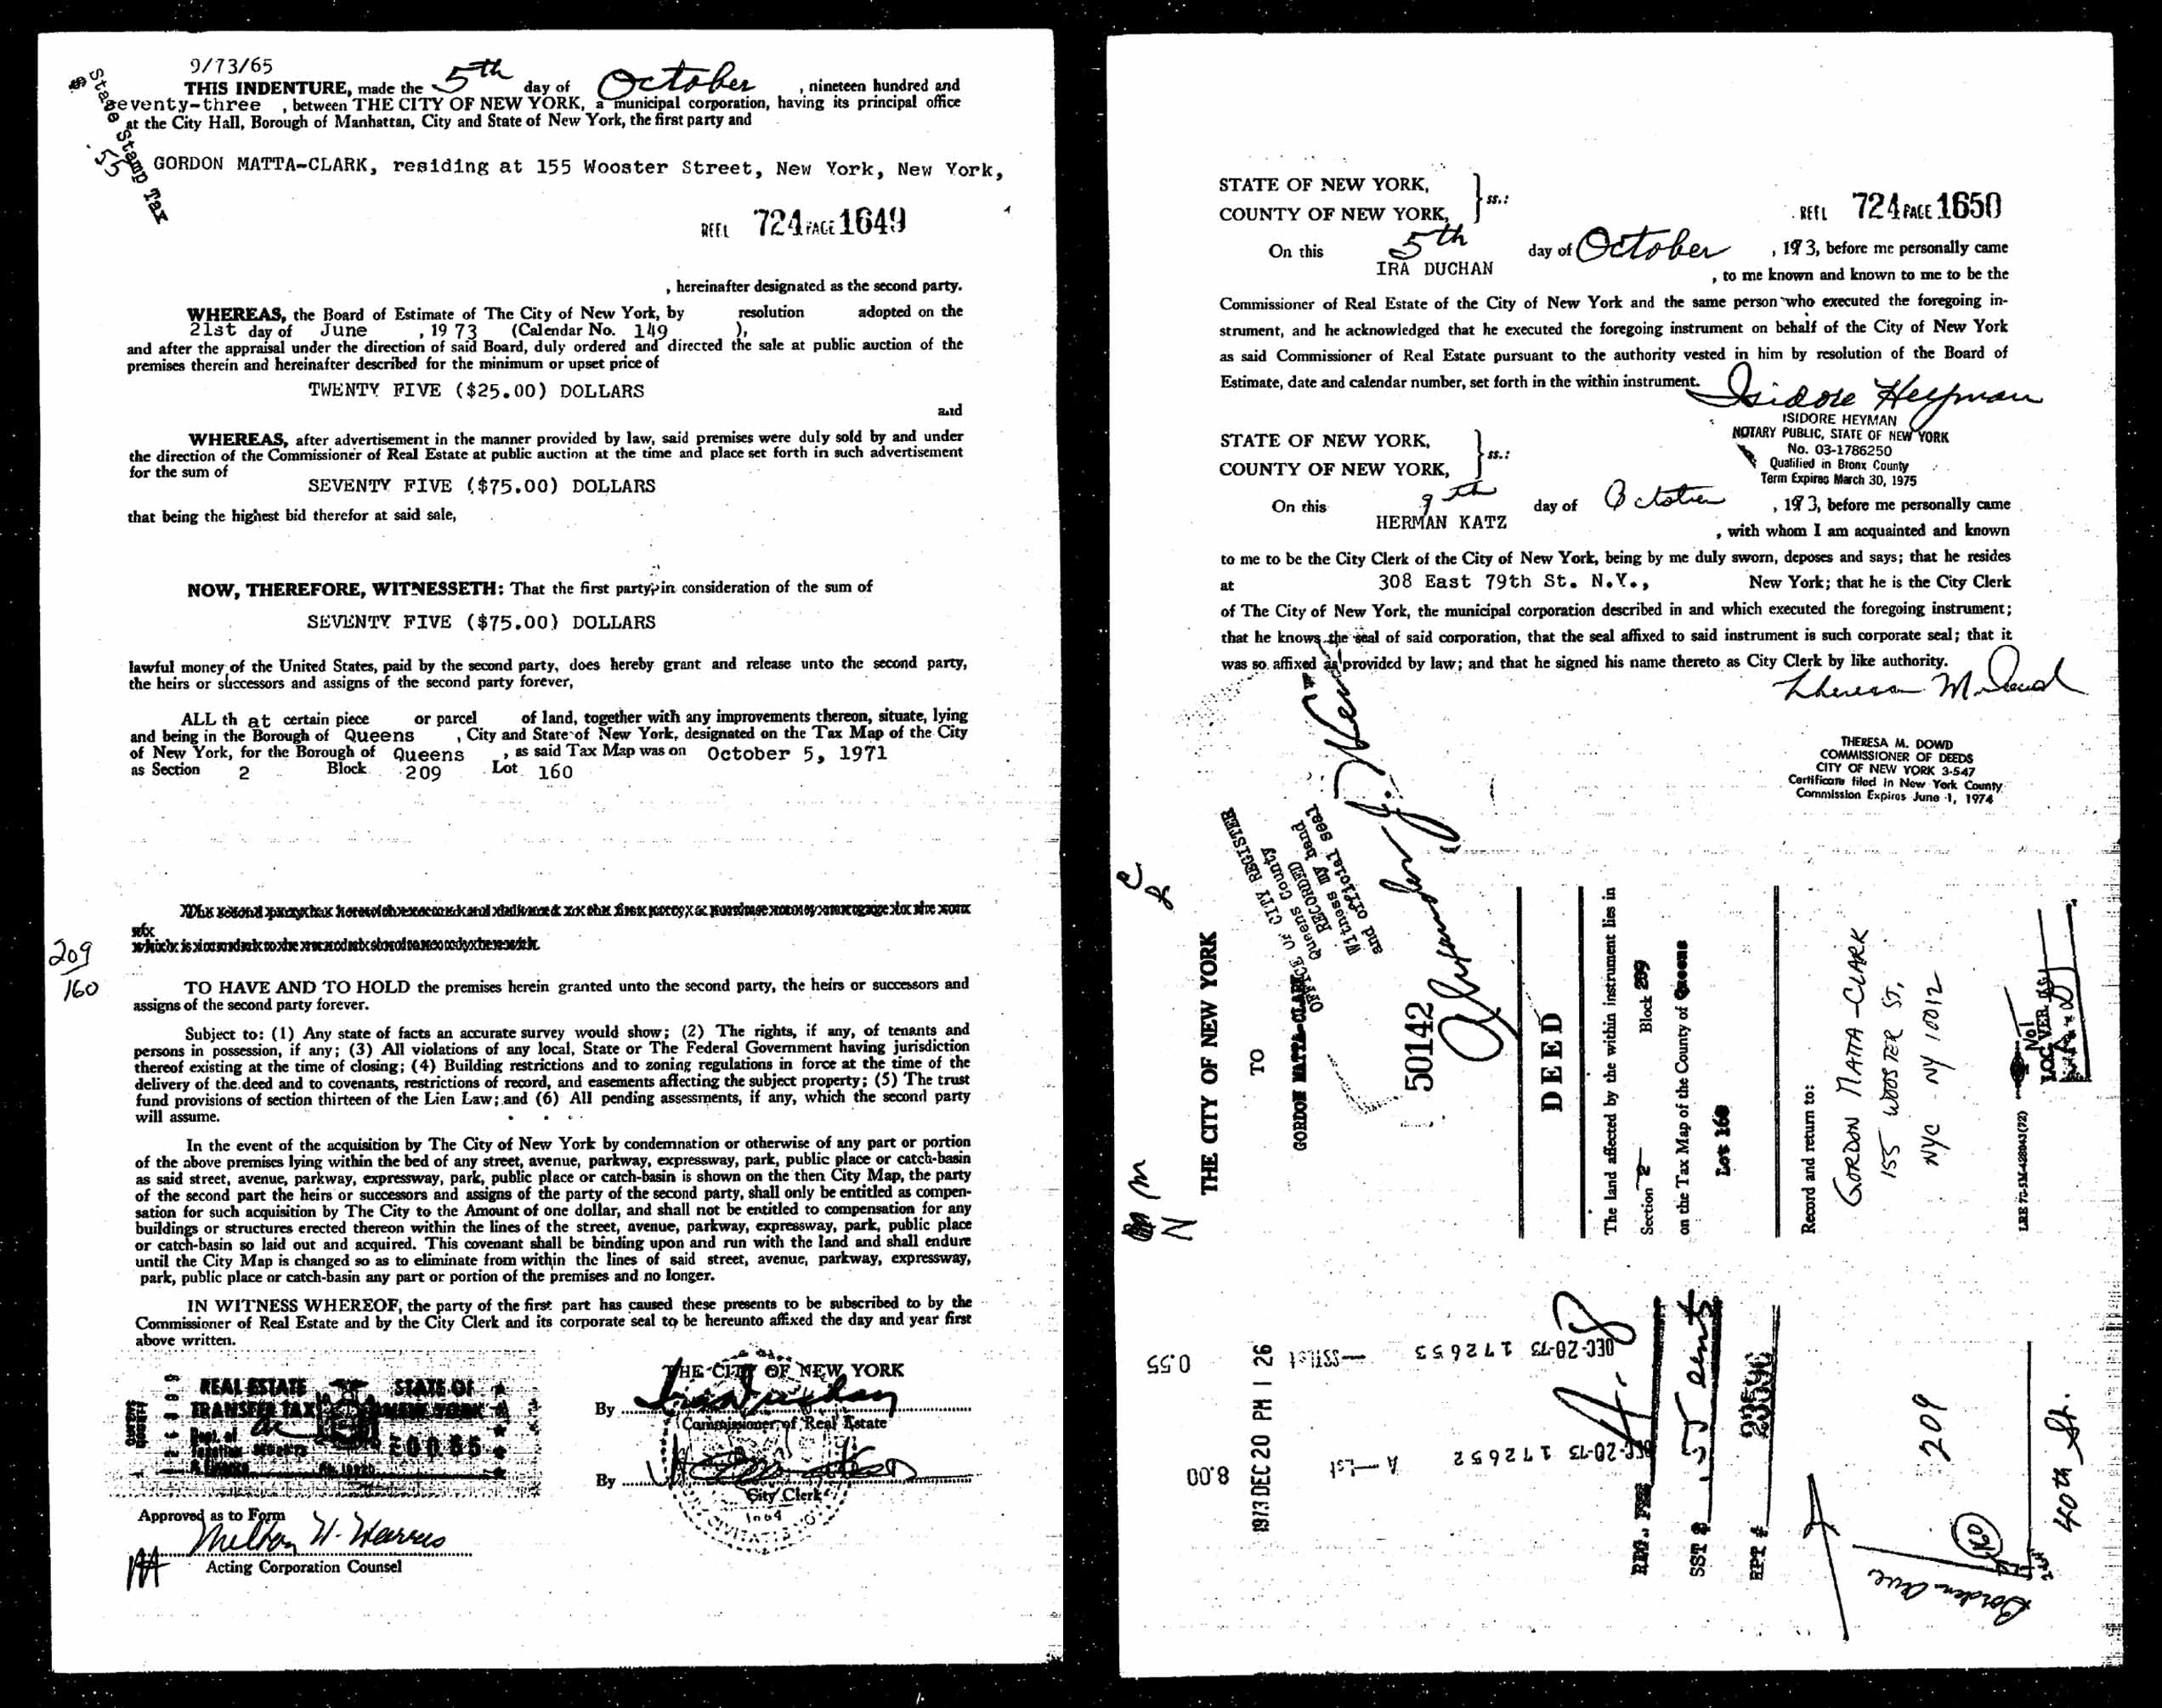 9/73/65
THIS INDENTURE, made the 5th day of October , nineteen hundred and
seventy-three , between THE CITY OF NEW YORK, a municipal corporation, having its principal office
at the City Hall, Borough of Manhattan, City and State of New York, the first party and
State Stamp Tax
.55
GORDON MATTA-CLARK, residing at 155 Wooster Street, New York, New York,
REEL 724 PAGE 1649
, hereinafter designated as the second party.
WHEREAS, the Board of Estimate of The City of New York, by resolution adopted on the
21st day of June , 19 73 (Calendar No. 149 ),
and after the appraisal under the direction of said Board, duly ordered and directed the sale at public auction of the
premises therein and hereinafter described for the minimum or upset price of
TWENTY FIVE ($25.00) DOLLARS
and
WHEREAS, after advertisement in the manner provided by law, said premises were duly sold by and under
the direction of the Commissioner of Real Estate at public auction at the time and place set forth in such advertisement
for the sum of
SEVENTY FIVE ($75.00) DOLLARS
that being the highest bid therefor at said sale,
NOW, THEREFORE, WITNESSETH: That the first party, in consideration of the sum of
SEVENTY FIVE ($75.00) DOLLARS
lawful money of the United States, paid by the second party, does hereby grant and release unto the second party,
the heirs or successors and assigns of the second party forever,
ALL th at certain piece or parcel of land, together with any improvements thereon, situate, lying
and being in the Borough of Queens , City and State of New York, designated on the Tax Map of the City
of New York, for the Borough of Queens , as said Tax Map was on October 5, 1971
as Section 2 Block 209 Lot 160
209
160
TO HAVE AND TO HOLD the premises herein granted unto the second party, the heirs or successors and
assigns of the second party forever.
Subject to: (1) Any state of facts an accurate survey would show; (2) The rights, if any, of tenants and
persons in possession, if any; (3) All violations of any local, State or The Federal Government having jurisdiction
thereof existing at the time of closing; (4) Building restrictions and to zoning regulations in force at the time of the
delivery of the deed and to covenants, restrictions of record, and easements affecting the subject property; (5) The trust
fund provisions of section thirteen of the Lien Law; and (6) All pending assessments, if any, which the second party
will assume.
In the event of the acquisition by The City of New York by condemnation or otherwise of any part or portion
of the above premises lying within the bed of any street, avenue, parkway, expressway, park, public place or catch-basin
as said street, avenue, parkway, expressway, park, public place or catch-basin is shown on the then City Map, the party
of the second part the heirs or successors and assigns of the party of the second party, shall only be entitled as compen-
sation for such acquisition by The City to the Amount of one dollar, and shall not be entitled to compensation for any
buildings or structures erected thereon within the lines of the street, avenue, parkway, expressway, park, public place
or catch-basin so laid out and acquired. This covenant shall be binding upon and run with the land and shall endure
until the City Map is changed so as to eliminate from within the lines of said street, avenue, parkway, expressway,
park, public place or catch-basin any part or portion of the premises and no longer.
IN WITNESS WHEREOF, the party of the first part has caused these presents to be subscribed to by the
Commissioner of Real Estate and by the City Clerk and its corporate seal to be hereunto affixed the day and year first
above written.
REAL ESTATE STATE OF
TRANSFER TAX NEW YORK
Dept. of
Taxation
THE CITY OF NEW YORK
By
Commissioner of Real Estate
By
City Clerk
Approved as to Form
Milton H. Harris
Acting Corporation Counsel
STATE OF NEW YORK,
COUNTY OF NEW YORK, ss.:
REEL 724 PAGE 1650
On this 5th day of October , 1973, before me personally came
IRA DUCHAN , to me known and known to me to be the
Commissioner of Real Estate of the City of New York and the same person who executed the foregoing in-
strument, and he acknowledged that he executed the foregoing instrument on behalf of the City of New York
as said Commissioner of Real Estate pursuant to the authority vested in him by resolution of the Board of
Estimate, date and calendar number, set forth in the within instrument.
Isidore Heyman
ISIDORE HEYMAN
NOTARY PUBLIC, STATE OF NEW YORK
No. 03-1786250
Qualified in Bronx County
Term Expires March 30, 1975
STATE OF NEW YORK,
COUNTY OF NEW YORK, ss.:
On this 9th day of October , 1973, before me personally came
HERMAN KATZ , with whom I am acquainted and known
to me to be the City Clerk of the City of New York, being by me duly sworn, deposes and says; that he resides
at 308 East 79th St. N.Y., New York; that he is the City Clerk
of The City of New York, the municipal corporation described in and which executed the foregoing instrument;
that he knows the seal of said corporation, that the seal affixed to said instrument is such corporate seal; that it
was so affixed as provided by law; and that he signed his name thereto as City Clerk by like authority.
Theresa M. Dowd
THERESA M. DOWD
COMMISSIONER OF DEEDS
CITY OF NEW YORK 3-547
Certificate filed in New York County
Commission Expires June 1, 1974
THE CITY OF NEW YORK
TO
GORDON MATTA-CLARK
OFFICE OF CITY REGISTER
Queens County
RECORDED
Witness my hand
and official seal
50142
DEED
The land affected by the within instrument lies in
Section 2 Block 209
on the Tax Map of the County of Queens
Lot 160
Record and return to:
GORDON MATTA-CLARK
155 WOOSTER ST.
NYC - NY 10012
LOC VER BY
0.55
8.00
1973 DEC 20 PM 1 26
DEC-20-73 172653
DEC-20-73 172652 A
REG. FEE 8
SST # .55 cents
RPT #
209
160
Borden Ave
40th St.